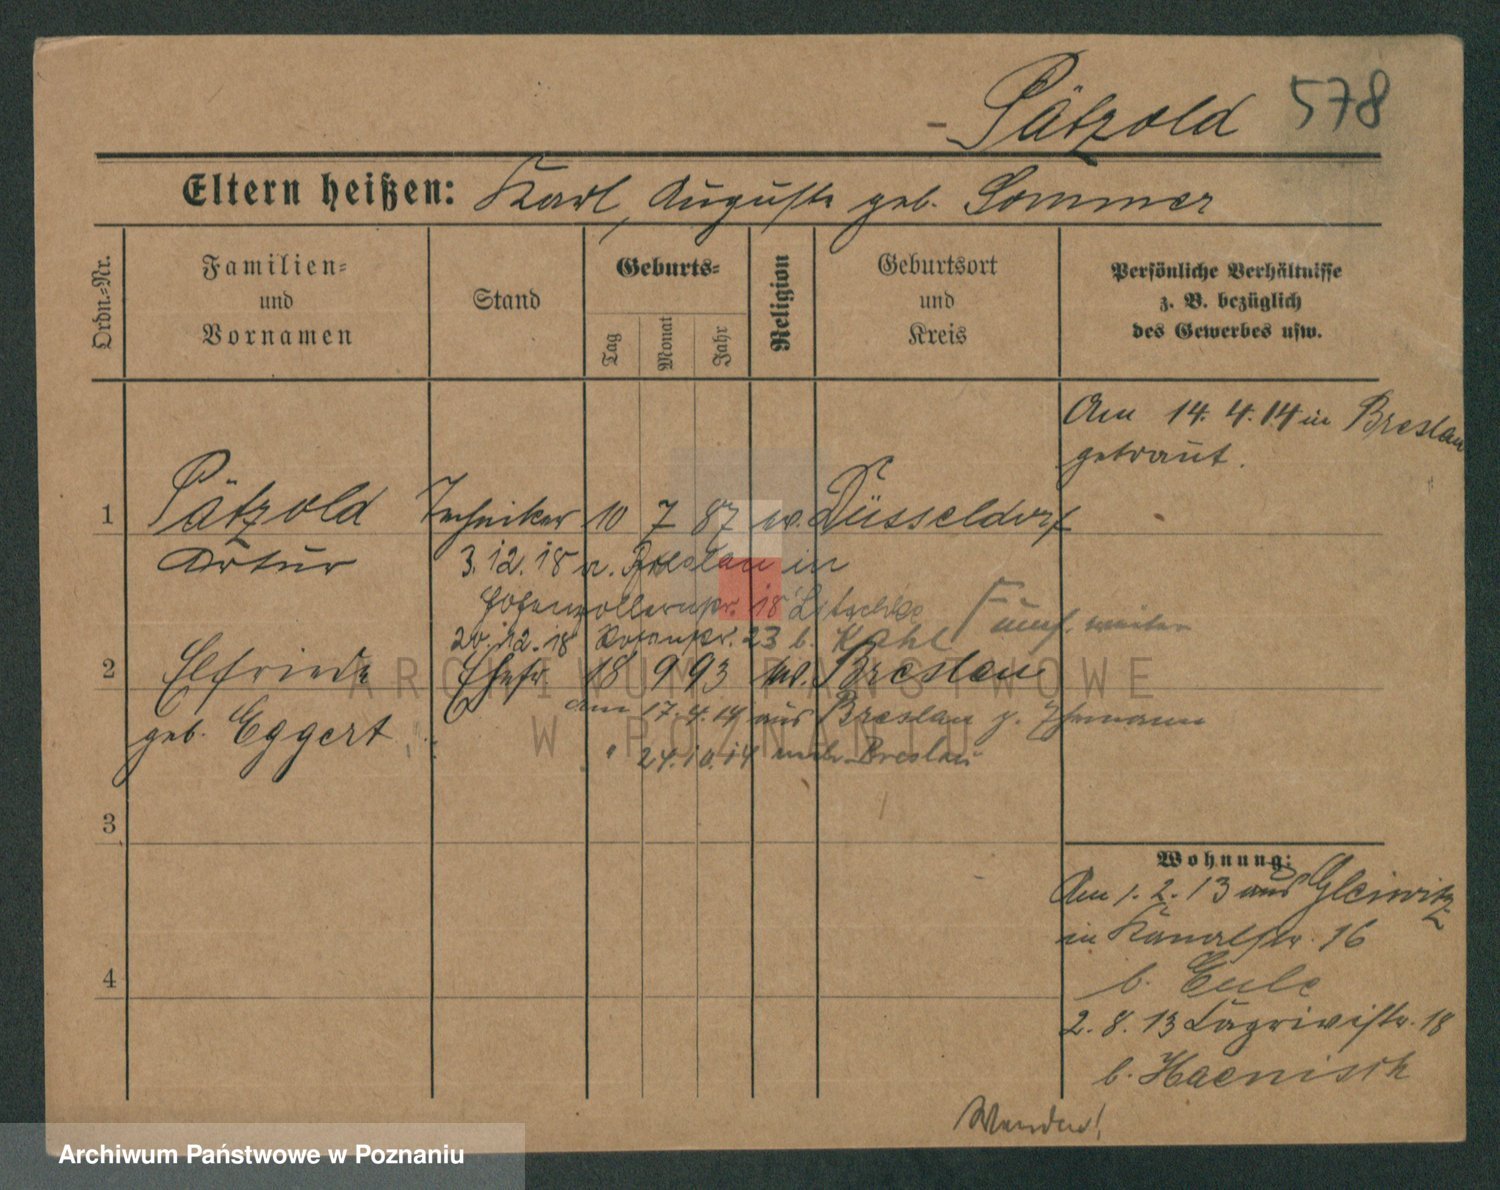 Pätzold 578
Eltern heißen: Karl, Auguste geb. Sommer
Ordn.-Nr.
Familien-
und
Vornamen
Stand
Geburts-
Tag
Monat
Jahr
Religion
Geburtsort
und
Kreis
Persönliche Verhältnisse
z. B. bezüglich
des Gewerbes usw.
Am 14. 4. 14 in Breslau
getraut.
1 Pätzold Techniker 10 7 87 ev. Düsseldorf
Artur 3. 12. 18 v. Breslau in
Hohenzollernstr. 18
20. 12. 18 23 b. Kahl
2 Elfriede Ehefr. 18 9 93 ev. Breslau
geb. Eggert am 17. 4. 14 aus Breslau z. Ehemann
" 24. 10. 14 nach Breslau
3
4
Wohnung:
Am 1. 2. 13 aus Gleiwitz
in Kanalstr. 16
b. Eule
2. 8. 13 18
b. Haenisch
Wenden!
ARCHIWUM PAŃSTWOWE
W POZNANIU
Archiwum Państwowe w Poznaniu